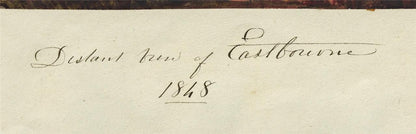 Distant view of Eastbourne
1848